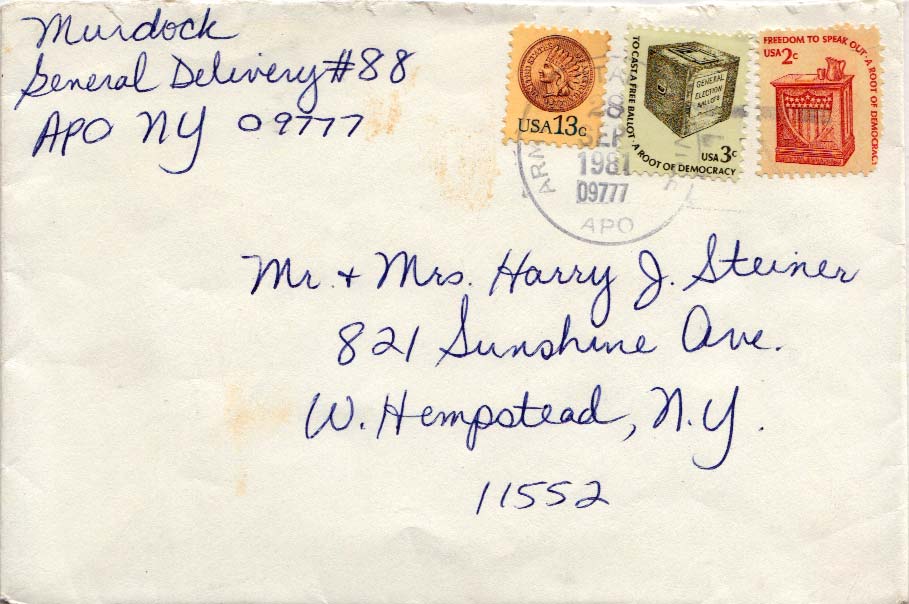 Murdock
General Delivery #88
APO NY 09777
UNITED STATES OF AMERICA
USA 13c
TO CAST A FREE BALLOT · A ROOT OF DEMOCRACY
GENERAL
ELECTION
BALLOTS
USA 3c
FREEDOM TO SPEAK OUT · A ROOT OF DEMOCRACY
USA 2c
28
SEP
1981
09777
APO
Mr. + Mrs. Harry J. Steiner
821 Sunshine Ave.
W. Hempstead, N.Y.
11552